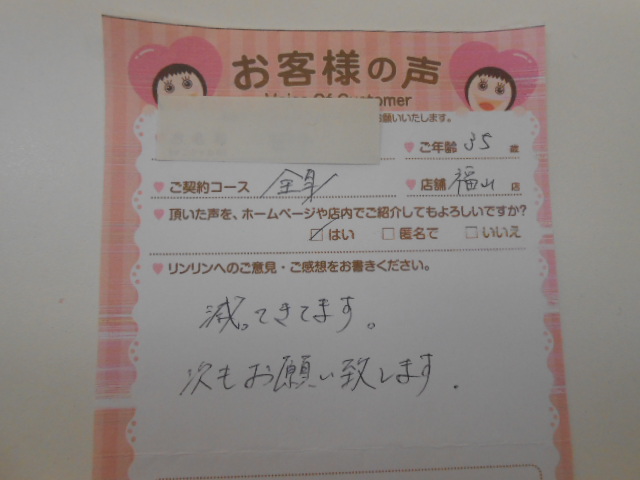 お客様の声
Voice Of Customer
願いいたします。
ご年齢 35 歳
ご契約コース 全身
店舗 福山 店
頂いた声を、ホームページや店内でご紹介してもよろしいですか?
はい 匿名で いいえ
リンリンへのご意見・ご感想をお書きください。
減ってきてます。
次もお願い致します.